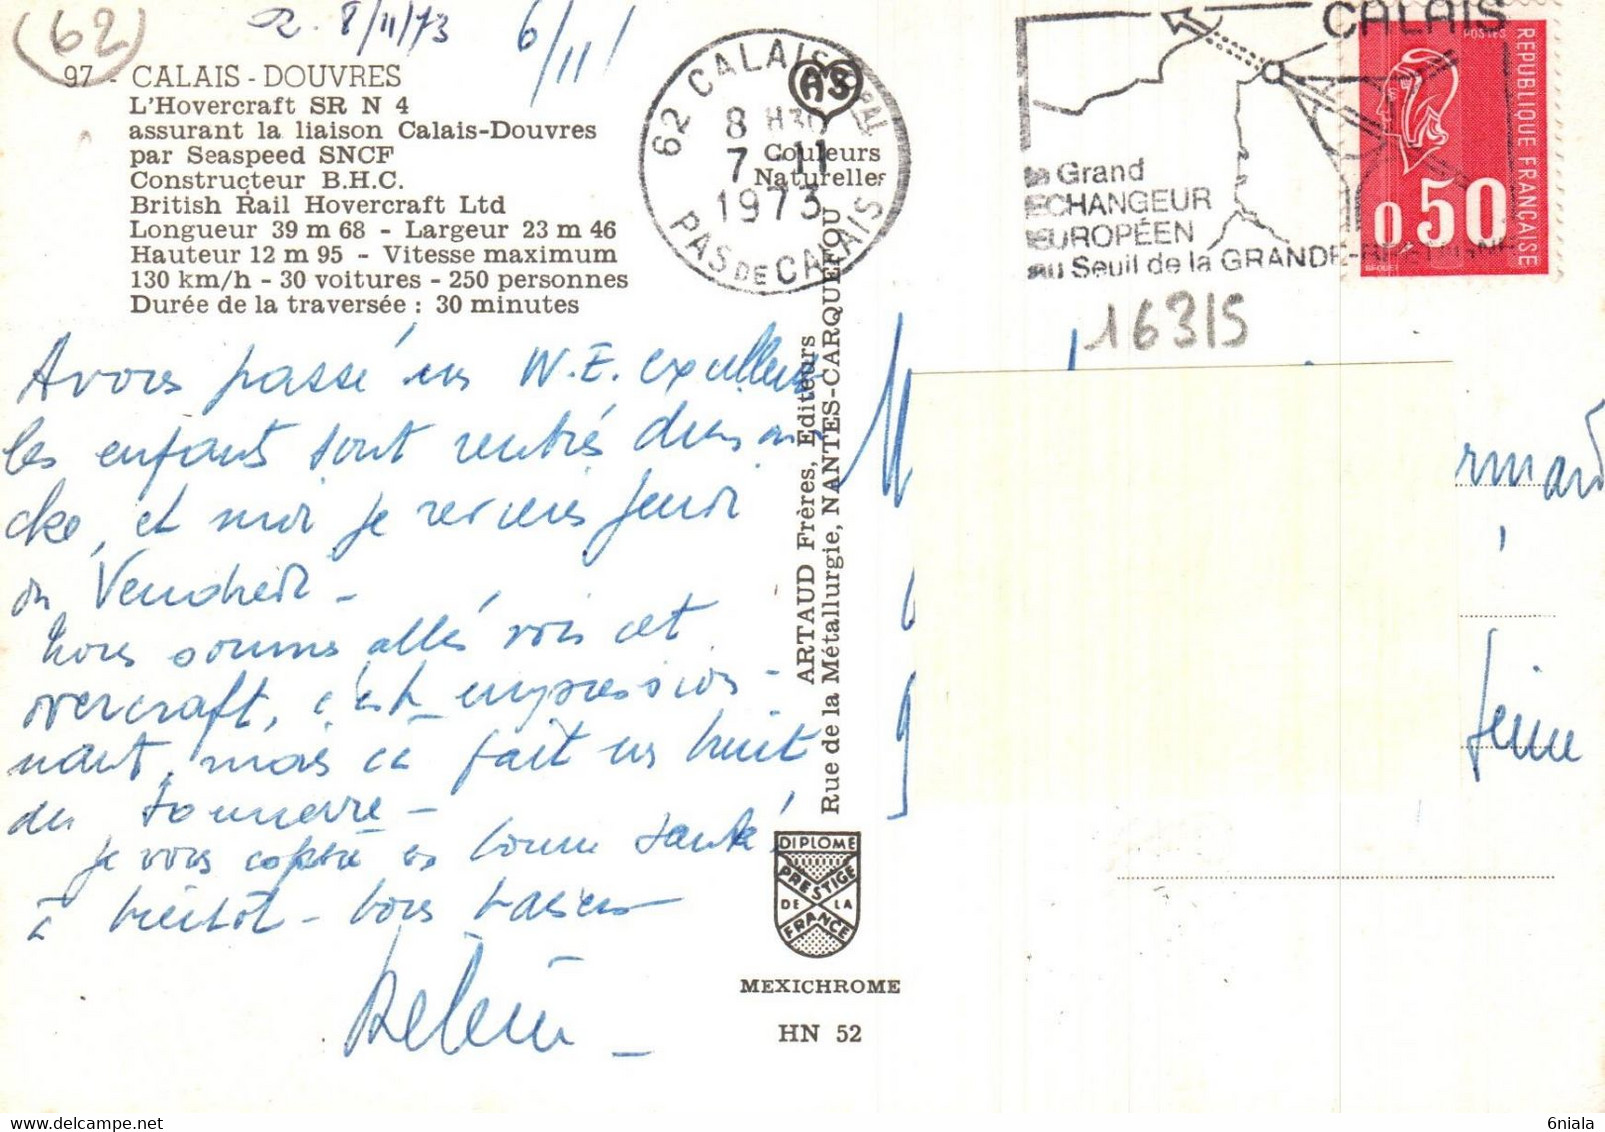 (62)
R. 8/11/73
6/11/
97 - CALAIS - DOUVRES
L'Hovercraft SR N 4
assurant la liaison Calais-Douvres
par Seaspeed SNCF
Constructeur B.H.C.
British Rail Hovercraft Ltd
Longueur 39 m 68 - Largeur 23 m 46
Hauteur 12 m 95 - Vitesse maximum
130 km/h - 30 voitures - 250 personnes
Durée de la traversée : 30 minutes
62 CALAIS PAL
8 H30
7 - 11
1973
PAS DE CALAIS
AS
Couleurs
Naturelles
CALAIS
le Grand
ECHANGEUR
EUROPÉEN
au Seuil de la GRANDE-BRETAGNE
POSTES
REPUBLIQUE FRANÇAISE
0,50
BEQUET
16315
Avons passé un W.E. excellent
les enfants sont rentrés dim
che, et moi je reviens Jeudi
ou Vendredi -
Nous sommes allés voir cet
overcraft, c'est impression-
nant, mais ça fait un bruit
du tonnerre -
Je vous espère en bonne santé!
à bientôt - bons baisers
ARTAUD Frères, Editeurs
Rue de la Métallurgie, NANTES-CARQUEFOU
M
rmard
Seine
DIPLOME
PRESTIGE
DE LA
FRANCE
MEXICHROME
HN 52
6niala